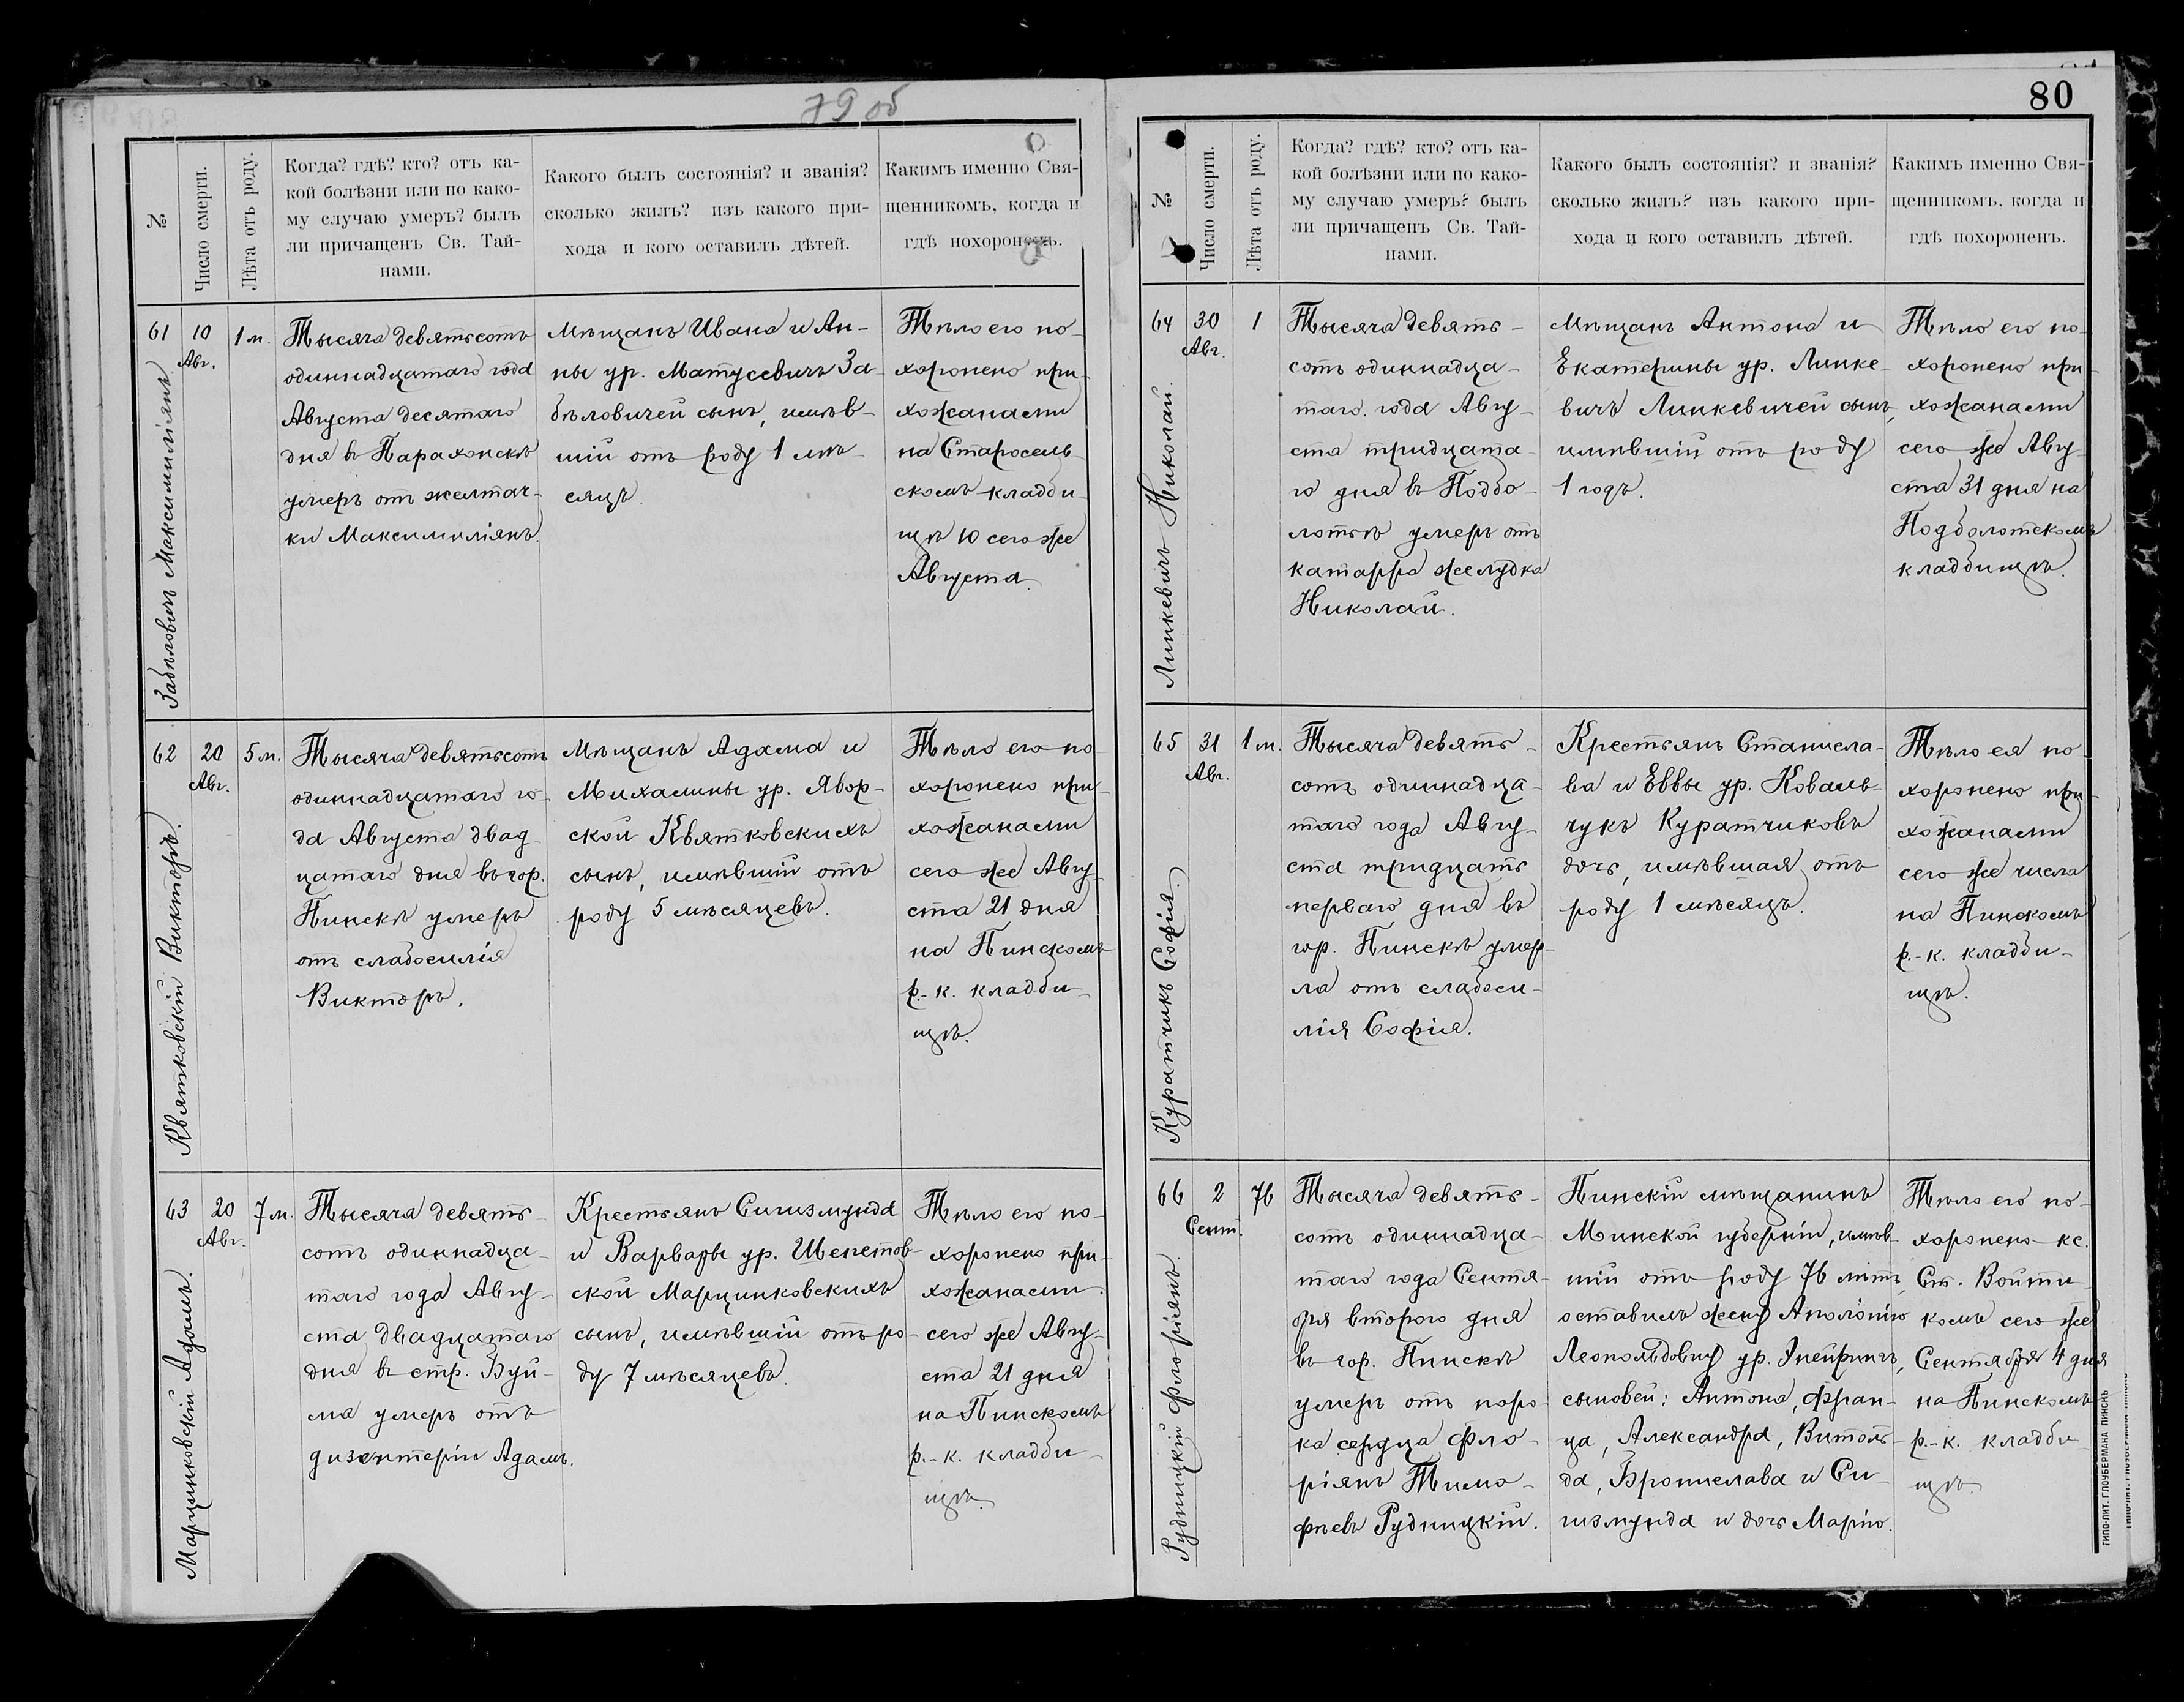 79 об
№
Число смерти.
Лѣта отъ роду.
Когда? гдѣ? кто? отъ ка-
кой болѣзни или по како-
му случаю умеръ? былъ
ли причащенъ Св. Тай-
нами.
Какого былъ состоянія? и званія?
сколько жилъ? изъ какого при-
хода и кого оставилъ дѣтей.
Какимъ именно Свя-
щенникомъ, когда и
гдѣ похороненъ.
61
Забѣловичъ Максимиліянъ
10
Авг.
1 м.
Тысяча девятьсотъ
одиннадцатаго года
Августа десятаго
дня въ Парахонскѣ
умеръ отъ желтач-
ки Максимиліянъ.
Мѣщанъ Ивана и Ан-
ны ур. Матусевичъ За-
бѣловичей сынъ, имѣв-
шій отъ роду 1 мѣ-
сяцъ.
Тѣло его по-
хоронено при-
хожанами
на Старосель-
скомъ кладби-
щѣ 10 сего же
Августа.
62
Квятковскій Викторъ.
20
Авг.
5 м.
Тысяча девятьсотъ
одиннадцатаго го-
да Августа двад-
цатаго дня въ гор.
Пинскѣ умеръ
отъ слабосилія
Викторъ.
Мѣщанъ Адама и
Михалины ур. Явор-
ской Квятковскихъ
сынъ, имѣвшій отъ
роду 5 мѣсяцевъ.
Тѣло его по-
хоронено при-
хожанами
сего же Авгу-
ста 21 дня
на Пинскомъ
р.-к. кладби-
щѣ.
63
Марцинковскій Адамъ.
20
Авг.
7 м.
Тысяча девять-
сотъ одиннадца-
таго года Авгу-
ста двадцатаго
дня въ стр. Буй-
ма умеръ отъ
дизентеріи Адамъ.
Крестьянъ Сигизмунда
и Варвары ур. Шепетов-
ской Марцинковскихъ
сынъ, имѣвшій отъ ро-
ду 7 мѣсяцевъ.
Тѣло его по-
хоронено при-
хожанами
сего же Авгу-
ста 21 дня
на Пинскомъ
р.-к. кладби-
щѣ.
80
№
Число смерти.
Лѣта отъ роду.
Когда? гдѣ? кто? отъ ка-
кой болѣзни или по како-
му случаю умеръ? былъ
ли причащенъ Св. Тай-
нами.
Какого былъ состоянія? и званія?
сколько жилъ? изъ какого при-
хода и кого оставилъ дѣтей.
Какимъ именно Свя-
щенникомъ, когда и
гдѣ похороненъ.
64
Линкевичъ Николай.
30
Авг.
1
Тысяча девять-
сотъ одиннадца-
таго года Авгу-
ста тридцата-
го дня въ Поддо-
лотьѣ умеръ отъ
катарра желудка
Николай.
Мѣщанъ Антона и
Екатерины ур. Линке-
вичъ Линкевичей сынъ,
имѣвшій отъ роду
1 годъ.
Тѣло его по-
хоронено при-
хожанами
сего же Авгу-
ста 31 дня на
Подболотскомъ
кладбищѣ.
65
Куратчикъ Софія.
31
Авг.
1 м.
Тысяча девять-
сотъ одиннадца-
таго года Авгу-
ста тридцать
перваго дня въ
гор. Пинскѣ умер-
ла отъ слабоси-
лія Софія.
Крестьянъ Станисла-
ва и Еввы ур. Коваль-
чукъ Куратчиковъ
дочь, имѣвшая отъ
роду 1 мѣсяцъ.
Тѣло ея по-
хоронено при-
хожанами
сего же числа
на Пинскомъ
р.-к. кладби-
щѣ.
66
Рудницкій Флоріянъ
2
Сент.
76
Тысяча девять-
сотъ одиннадца-
таго года Сентя-
бря второго дня
въ гор. Пинскѣ
умеръ отъ поро-
ка сердца Фло-
ріянъ Тимо-
фѣевъ Рудницкій.
Пинскій мѣщанинъ
Минской губерніи, имѣв-
шій отъ роду 76 лѣтъ,
оставилъ жену Аполонію
Леопольдовну ур.
сыновей: Антона, Фран-
ца, Александра, Витоль-
да, Бронислава и Си-
гизмунда и дочь Марію.
Тѣло его по-
хоронено кс.
Ст. Войти-
комъ сего же
Сентября 4 дня
на Пинскомъ
р.-к. кладби-
щѣ.
ТИПО-ЛИТ. ГЛОУБЕРМАНА ПИНСКЪ